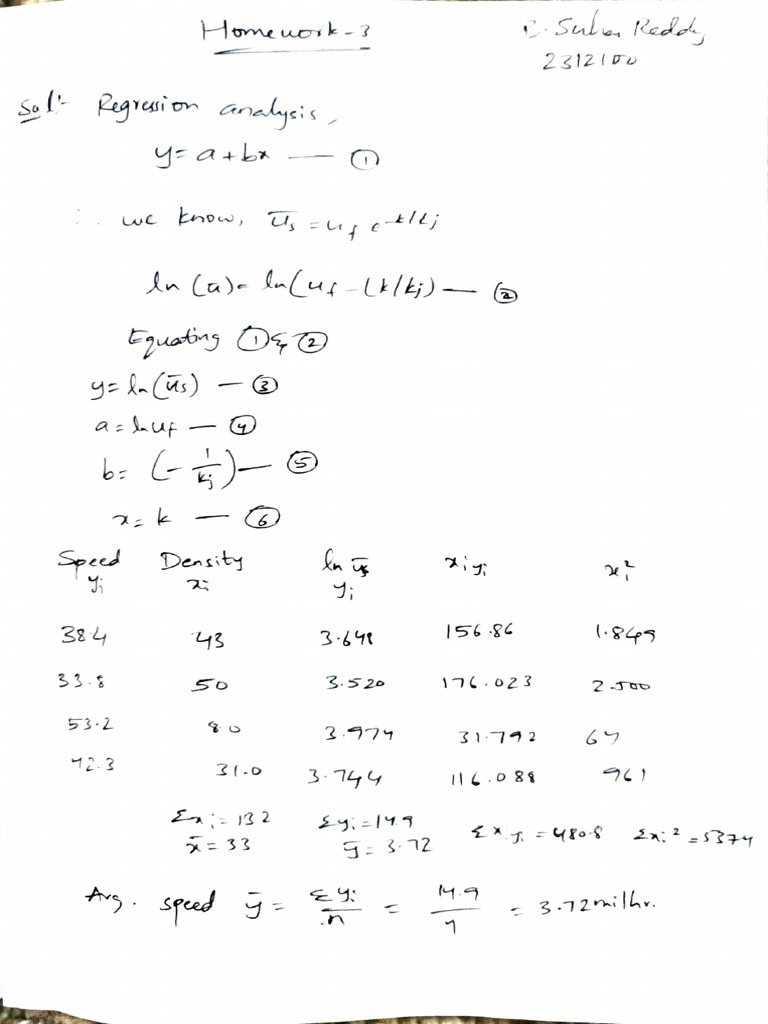 Homework-3
B. Suhas Reddy
2312100
Sol:- Regression analysis,
y = a + bx — ①
∴ we know, ūs = uf e^-k/kj
ln (ū) = ln(uf - (k/kj) — ②
Equating ① & ②
y = ln(ūs) — ③
a = ln uf — ④
b = (- 1/kj) — ⑤
x = k — ⑥
Speed yi Density xi ln ūs yi xi yi xi²
38.4 43 3.648 156.86 1.849
33.8 50 3.520 176.023 2.500
53.2 8.0 3.974 31.792 64
42.3 31.0 3.744 116.088 961
Σxi = 132 Σyi = 14.9 Σxiyi = 480.8 Σxi² = 5374
x̄ = 33 ȳ = 3.72
Avg. speed ȳ = Σyi/n = 14.9/4 = 3.72 mi/hr.